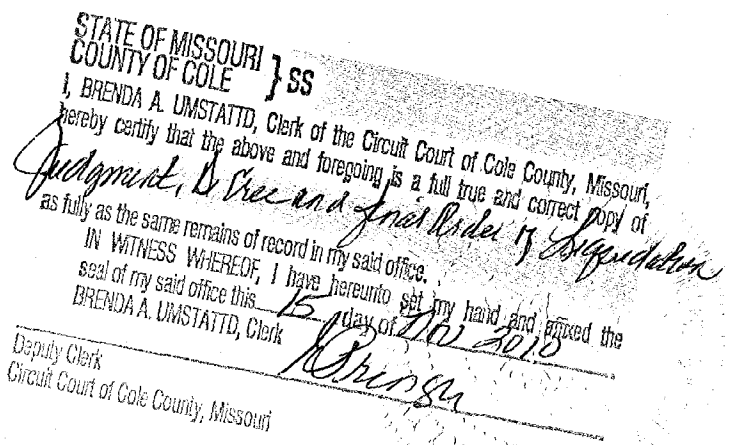 STATE OF MISSOURI
COUNTY OF COLE } SS
I, BRENDA A. UMSTATTD, Clerk of the Circuit Court of Cole County, Missouri,
hereby certify that the above and foregoing is a full true and correct copy of
Judgment, Decree and final Order of Liquidation
as fully as the same remains of record in my said office.
IN WITNESS WHEREOF, I have hereunto set my hand and affixed the
seal of my said office this 15 day of Nov 2010
BRENDA A. UMSTATTD, Clerk
Deputy Clerk
Circuit Court of Cole County, Missouri